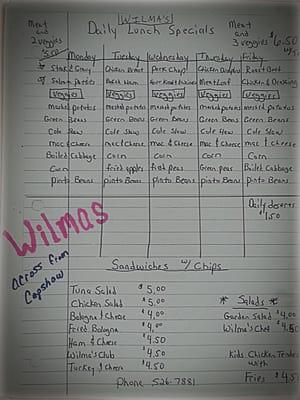 [WILMA'S]
Meat Daily Lunch Specials Meat
and and
2 veggies 3 veggies
5.50 $6.50
Monday Tuesday Wednesday Thursday Friday
* Steak & Gravy Chicken Breast Pork Chop Chicken Meat Loaf Roast Beef
Chicken & Dressing
Veggies Veggies Veggies Veggies Veggies
mashed potatoes mashed potatoes mashed potatoes mashed potatoes mashed potatoes
Green Beans Green Beans Green Beans Green Beans Green Beans
Cole Slaw Cole Slaw Cole Slaw Cole Slaw Cole Slaw
mac & Cheese mac & Cheese mac & Cheese mac & Cheese mac & Cheese
Boiled Cabbage Corn Corn Corn Corn
Corn fried apples field peas Green Peas Boiled Cabbage
pinto Beans pinto Beans pinto Beans pinto Beans pinto Beans
Daily deserts
$1.50
Wilmas
across from
Capshow
Sandwiches w/ Chips
Tuna Salad $5.00
Chicken Salad $5.00
Bologna & Cheese $4.00
Fried Bologna $4.00
Ham & Cheese $4.50
Wilma's Club $4.50
Turkey & Cheese $4.50
* Salads *
Garden Salad $4.00
Wilma's Chef $4.50
Kids Chicken Tender
with
Fries $4.5
Phone 526-7881